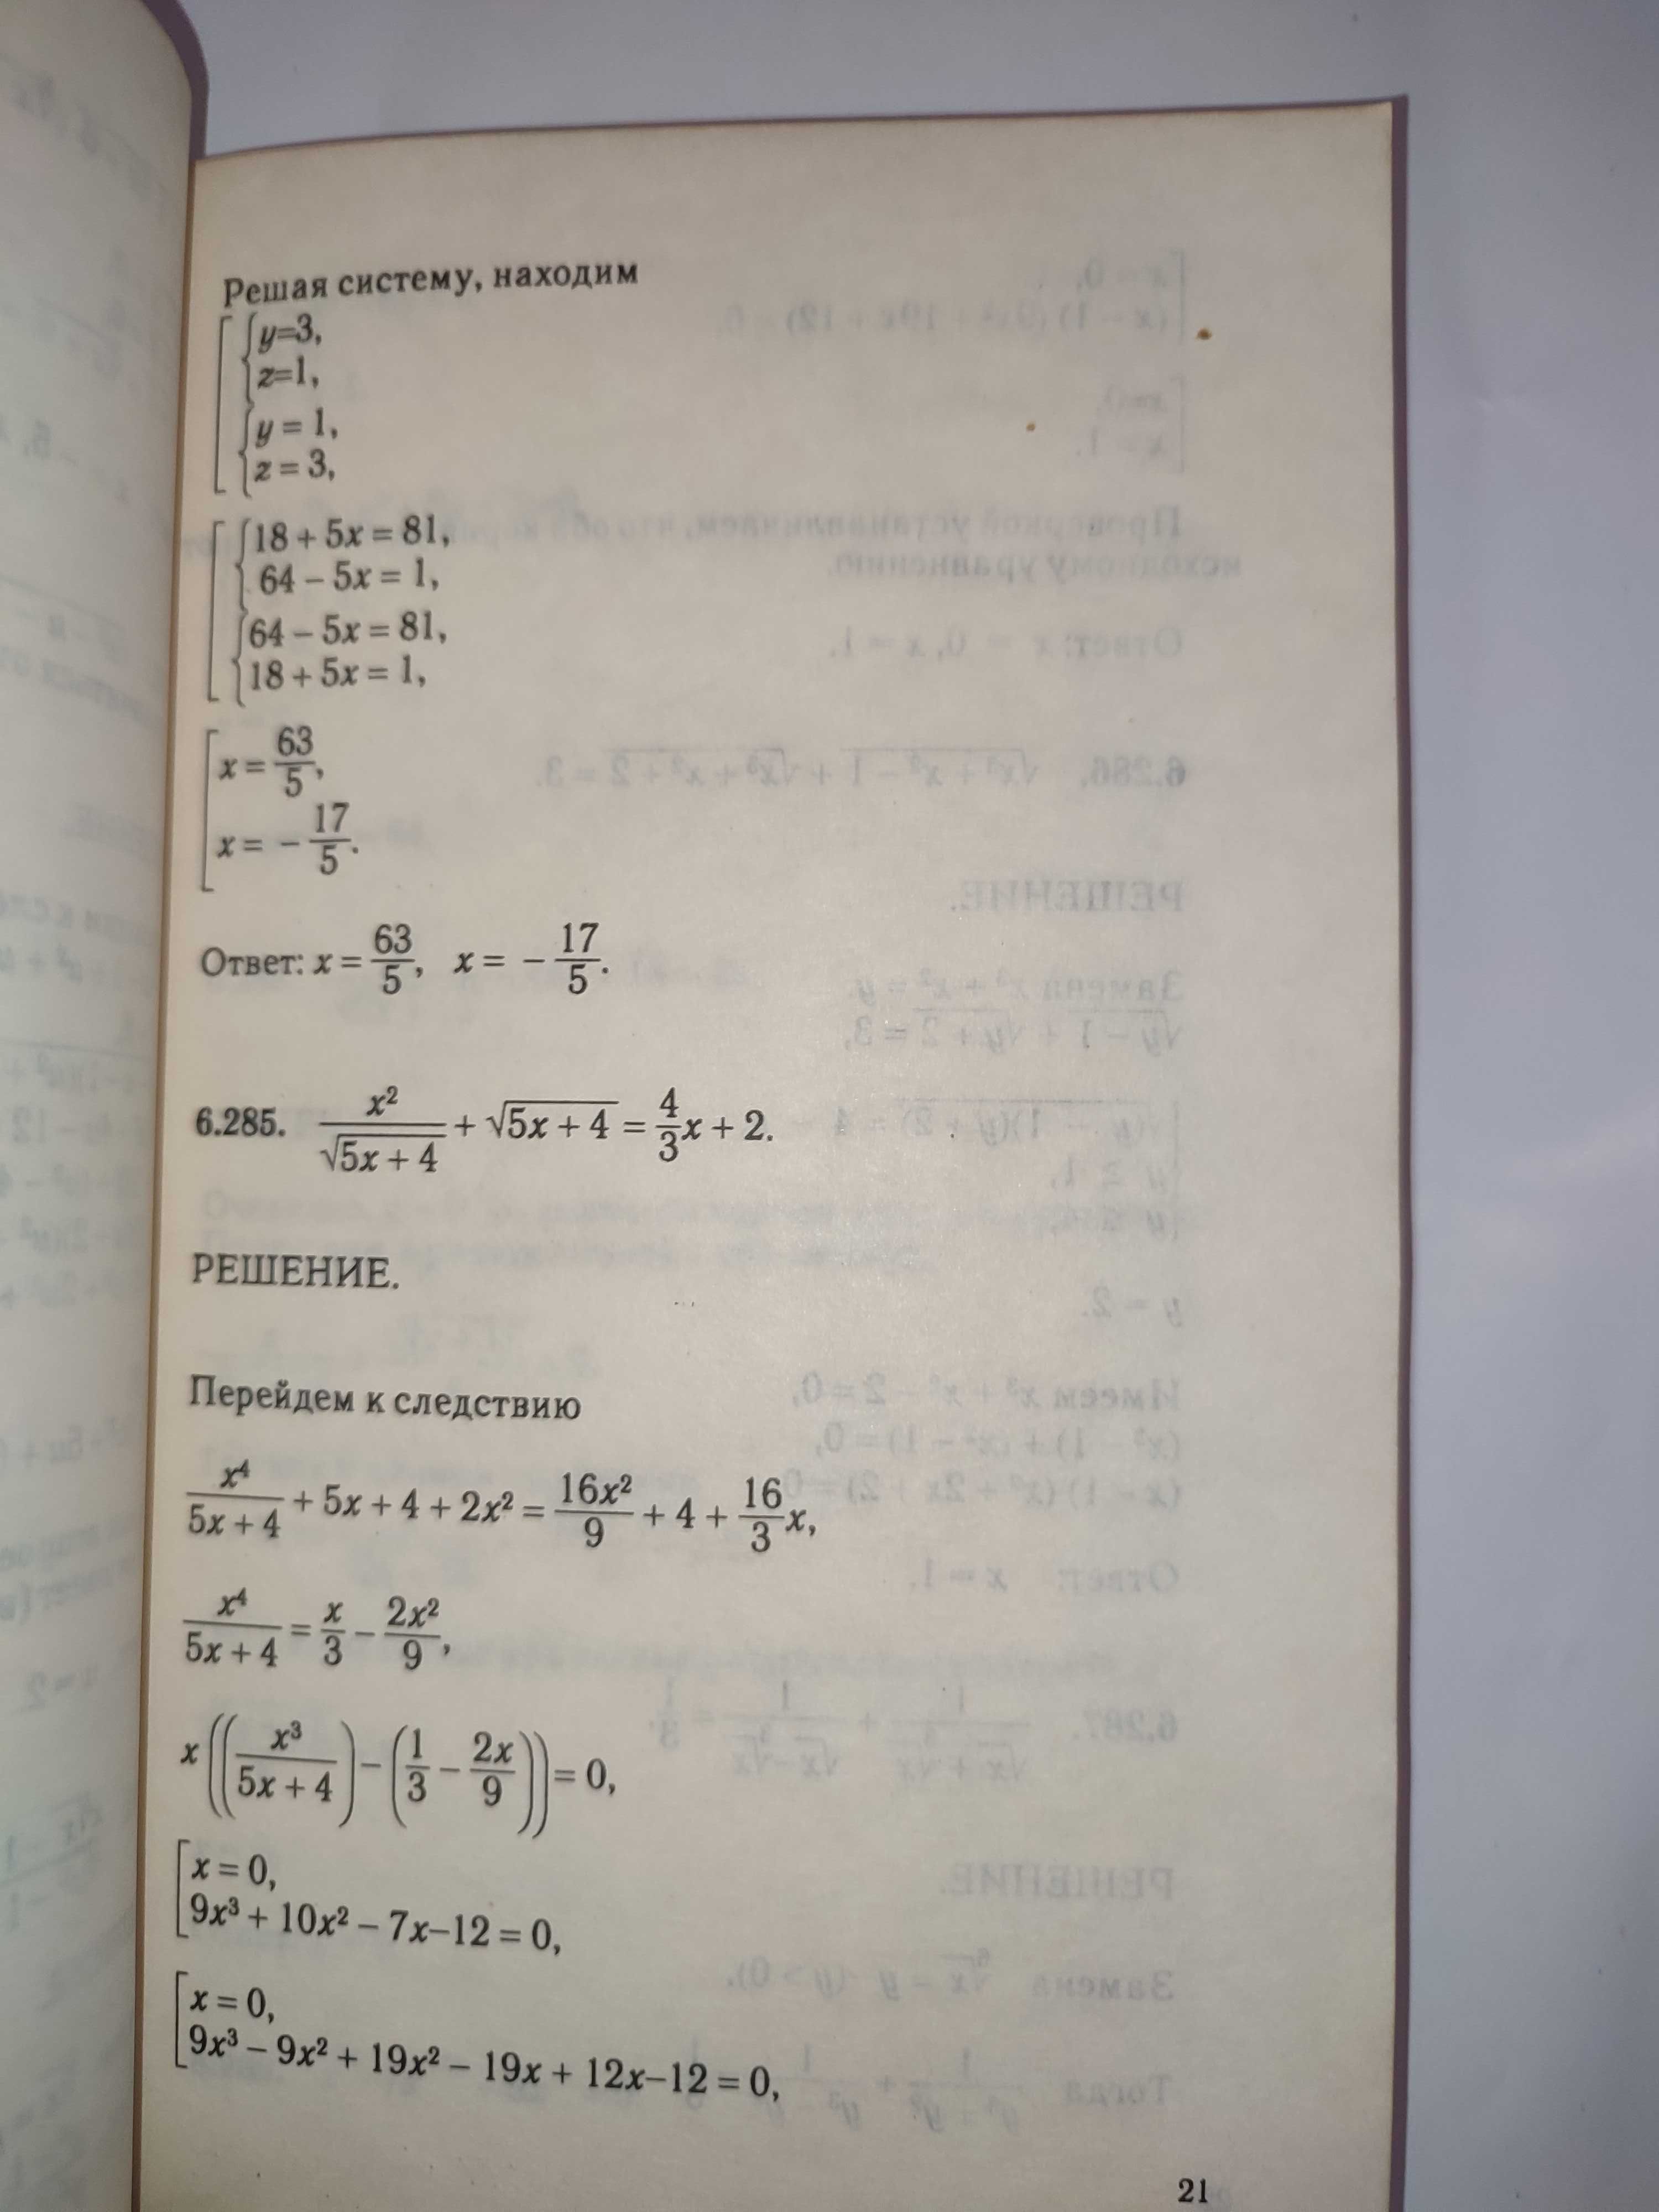 Решая систему, находим
y=3,
z=1,
y = 1,
z = 3,
18 + 5x = 81,
64 – 5x = 1,
64 – 5x = 81,
18 + 5x = 1,
x = 63/5,
x = – 17/5.
Ответ: x = 63/5, x = – 17/5.
6.285. x²/√(5x + 4) + √(5x + 4) = 4/3x + 2.
РЕШЕНИЕ.
Перейдем к следствию
x⁴/(5x + 4) + 5x + 4 + 2x² = 16x²/9 + 4 + 16/3x,
x⁴/(5x + 4) = x/3 – 2x²/9,
x((x³/(5x + 4)) – (1/3 – 2x/9)) = 0,
x = 0,
9x³ + 10x² – 7x–12 = 0,
x = 0,
9x³ – 9x² + 19x² – 19x + 12x–12 = 0,
21